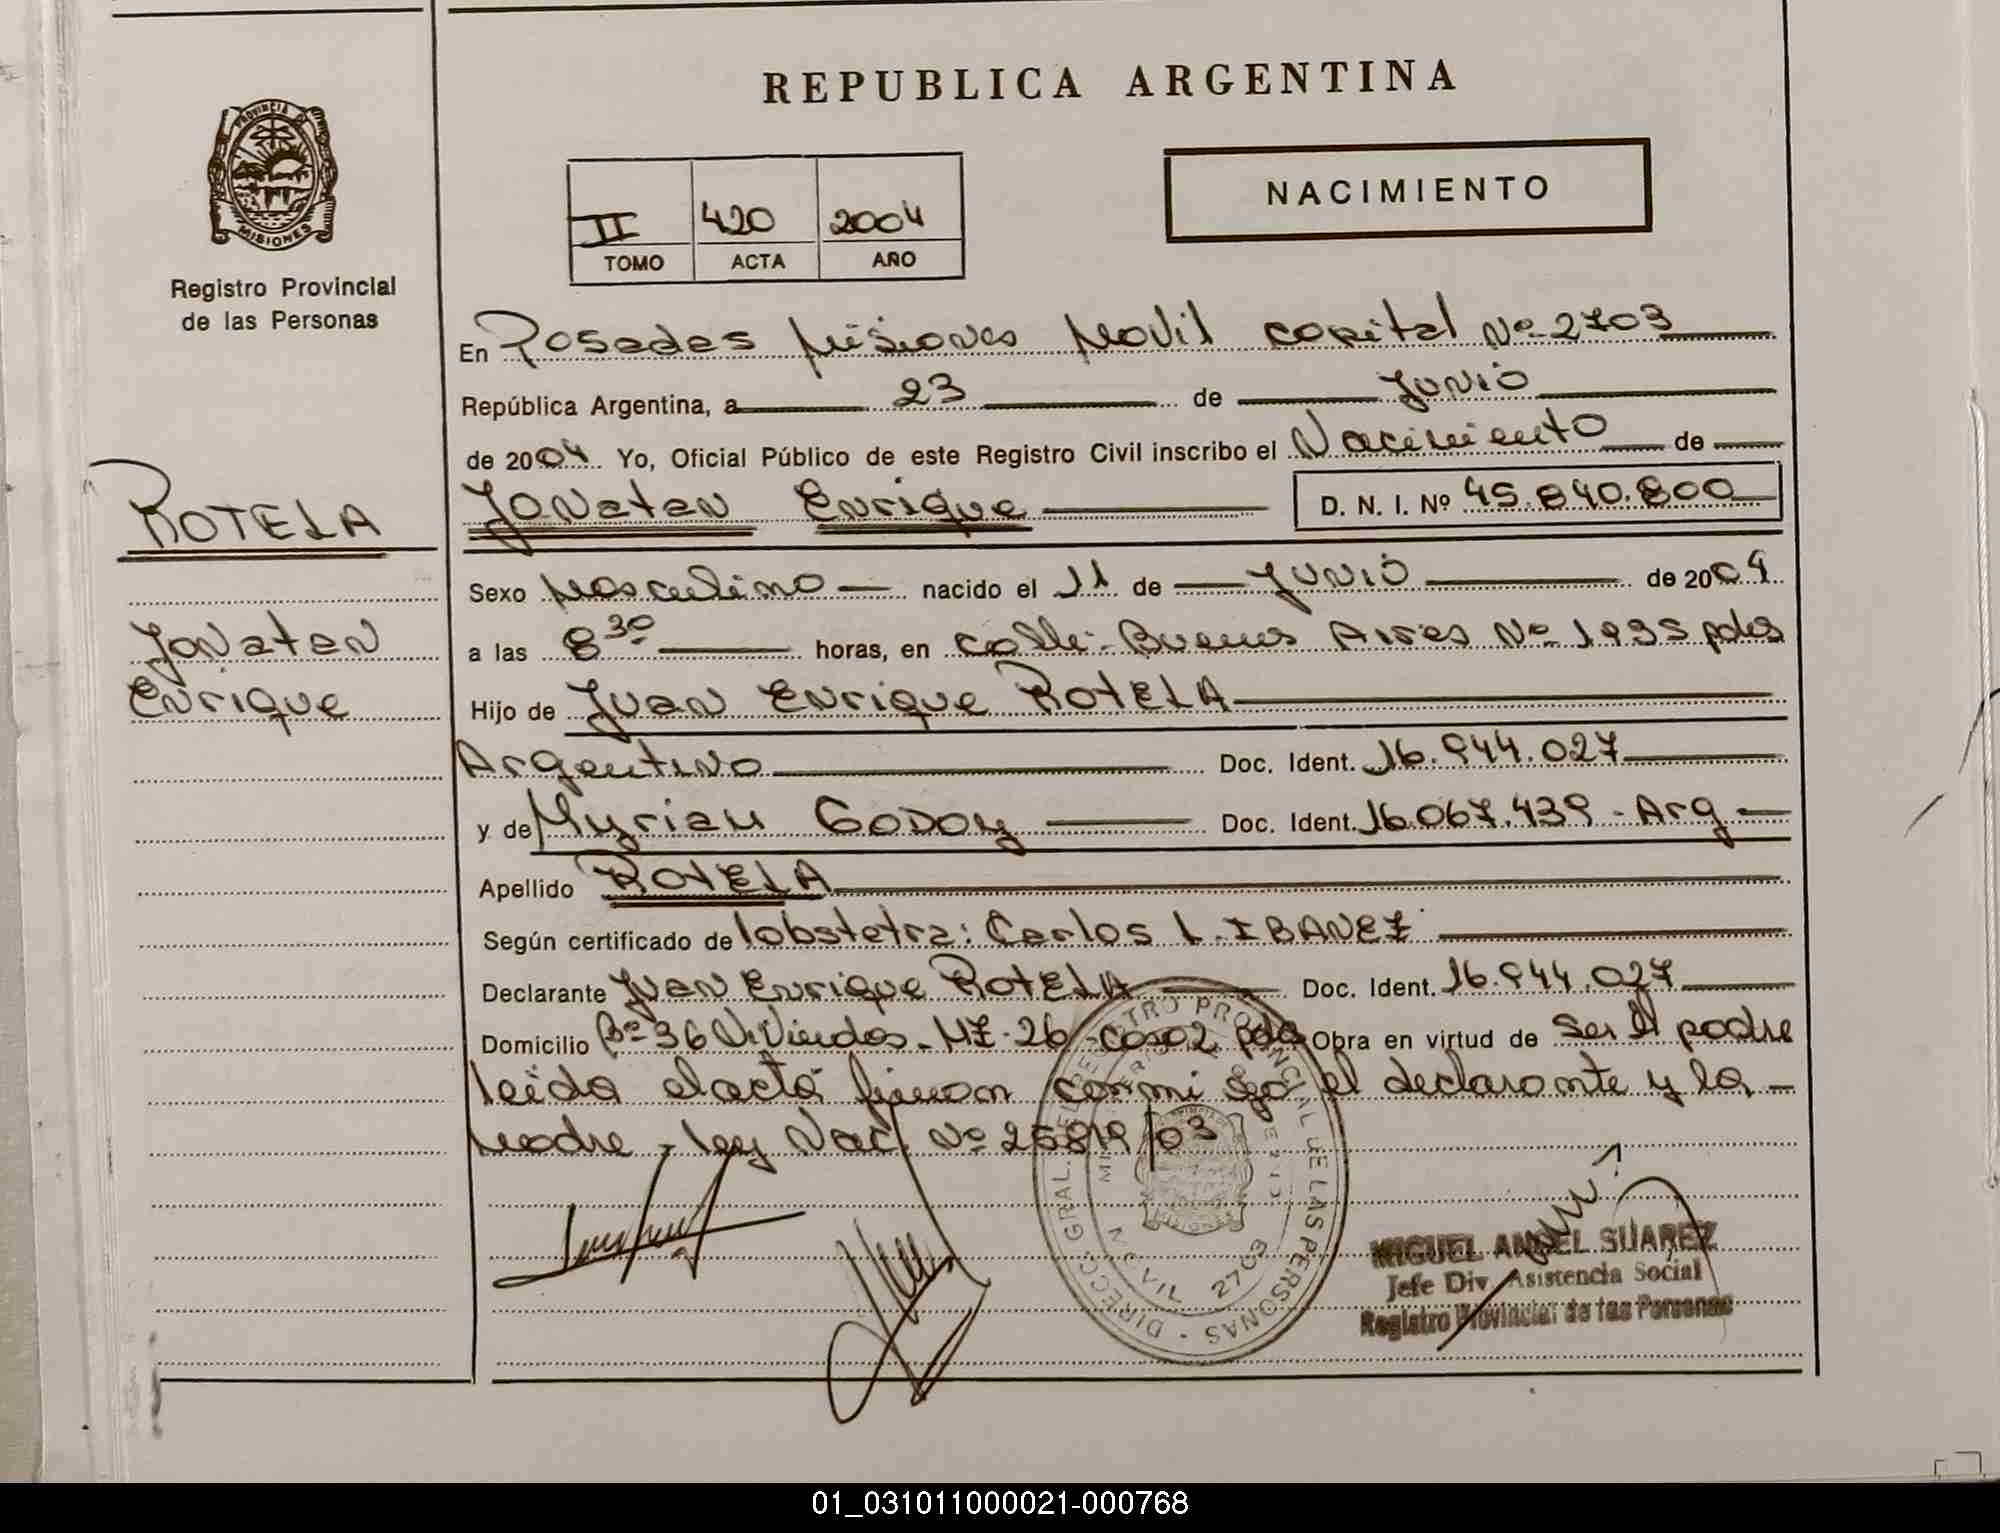 REPUBLICA ARGENTINA
PROVINCIA DE
MISIONES
Registro Provincial
de las Personas
NACIMIENTO
II 420 2004
TOMO ACTA AÑO
En Posadas Misiones Movil capital Nº 2703
República Argentina, a 23 de Junio
de 2004 Yo, Oficial Público de este Registro Civil inscribo el Nacimiento de
ROTELA
Jonatan Enrique D. N. I. Nº 45.840.800
Sexo Masculino nacido el 11 de Junio de 2004
Jonatan
Enrique
a las 8 30 horas, en calle: Buenos Aires Nº 1935 pdas
Hijo de Juan Enrique ROTELA
Argentino Doc. Ident. 16.944.027
y de Myriam GODOY Doc. Ident. 16.067.439 - Arg
Apellido ROTELA
Según certificado de lobstetra: Carlos L. IBAÑEZ
Declarante Juan Enrique ROTELA Doc. Ident. 16.944.027
Domicilio Bº 36 Viviendas - MZ - 26 - Casa 2 pdas Obra en virtud de ser el padre
leida el acta firman conmigo el declarante y la
Madre - ley Nac. Nº 25819/03
DIRECC. GRAL. DEL REGISTRO PROVINCIAL DE LAS PERSONAS
MOVIL 2703
MISIONES
MIGUEL ANGEL SUAREZ
Jefe Div. Asistencia Social
Registro Provincial de las Personas
01_031011000021-000768